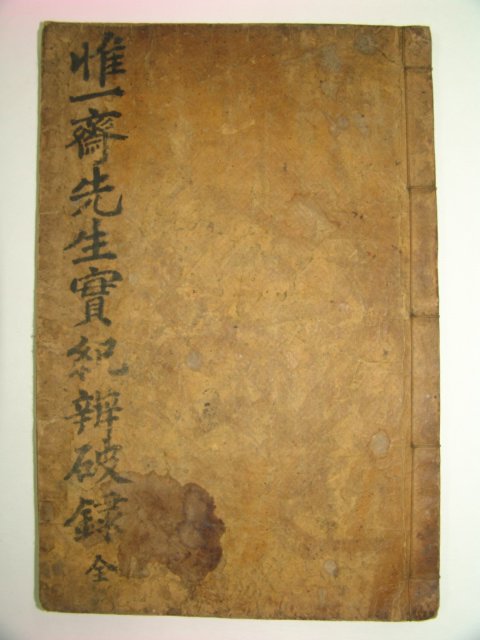 惟一齋先生實紀辨破録全